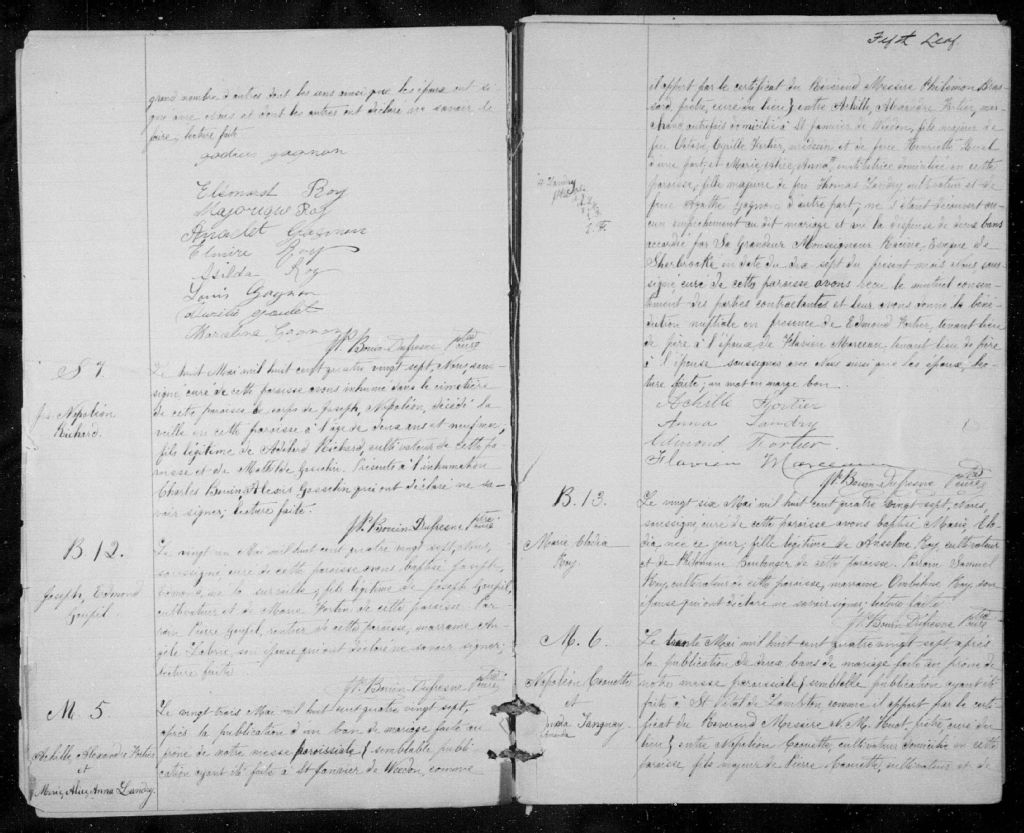 grand nombre d'autres dont les uns ainsi que les époux ont si-
gné avec Nous et dont les autres ont déclaré ne savoir le
faire, lecture faite
gagnon
Eléonard Roy
Majorique Roy
Anaclet Gagnon
Elmire Roy
Asilda Roy
Louis Gagnon
gaudet
Maralina Gagnon
Jh. Bouin-Dufresne Ptre Curé
S 7
Jos. Napoléon
Richard.
Le huit Mai mil huit cent quatre vingt sept, Nous, sous-
signé, curé de cette paroisse avons inhumé dans le cimetière
de cette paroisse le corps de Joseph, Napoléon, décédé la
veille en cette paroisse à l'âge de deux ans et neuf mois,
fils légitime de Adélard Richard, cultivateur de cette pa-
roisse et de Mathilde. Présents à l'inhumation
Charles Bouin Alexis Gosselin qui ont déclaré ne sa-
voir signer; lecture faite.
Jh. Bouin-Dufresne Ptre Curé
B 12.
Joseph, Edmond
Goupil
Le vingt un Mai mil huit cent quatre vingt sept, Nous,
soussigné, curé de cette paroisse avons baptisé Joseph,
Edmond, né la surveille, fils légitime de Joseph Goupil,
cultivateur et de Marie Fortin de cette paroisse. Par-
rain Pierre Goupil, rentier de cette paroisse, marraine An-
gèle Labrie, son épouse qui ont déclaré ne savoir signer;
lecture faite.
Jh. Bouin-Dufresne Ptre Curé
M 5.
Achille Alexandre Fortier
et
Marie, Alice, Anna Landry.
Le vingt trois Mai mil huit cent quatre vingt sept,
après la publication d'un ban de mariage faite au
prône de notre messe paroissiale (semblable publi-
cation ayant été faite à St Janvier de Weedon, comme
Fifth Leaf
il appert par le certificat du Révérend Messire Philémon Bras-
sard, prêtre, curé du lieu) entre Achille, Fortier, mar-
chand autrefois domicilié à St Janvier de Weedon, fils majeur de
feu Octave, Cyrille Fortier, médecin et de feue Henriette
d'une part, et Marie, Anna, institutrice domiciliée en cette
paroisse, fille majeure de feu Thomas Landry cultivateur et de
feue Agathe Gagnon d'autre part; ne s'étant découvert au-
cun empêchement au dit mariage et vu la dispense de deux bans
accordée par Sa Grandeur Monseigneur Racine, Evêque de
Sherbrooke en date du dix sept du présent mois Nous, sous-
signé, curé de cette paroisse avons reçu le mutuel consen-
tement des parties contractantes et leur avons donné la béné-
diction nuptiale en présence de Edmond Fortier, tenant lieu
de père à l'époux de Flavien Marceau, tenant lieu de père
à l'épouse soussignés avec Nous ainsi que les époux, lec-
ture faite; un mot en marge bon.
Achille Fortier
Anna Landry
Edmond Fortier
Flavien Marceau
Jh. Bouin-Dufresne Ptre Curé
B. 13.
Marie Clodia
Roy.
Le vingt six Mai mil huit cent quatre vingt sept, Nous,
soussigné, curé de cette paroisse avons baptisé Marie, Clo-
dia, née ce jour, fille légitime de Anselme Roy, cultivateur
et de Philomène Boulanger de cette paroisse. Parrain Samuel
Roy, cultivateur de cette paroisse, marraine Roy, son
épouse qui ont déclaré ne savoir signer; lecture faite.
Jh. Bouin-Dufresne Ptre Curé
M. 6.
Napoléon
et
Tanguay.
Le trente Mai mil huit cent quatre vingt sept, après
la publication de trois bans de mariage faite au prône de
notre messe paroissiale (semblable publication ayant été
faite à St Vital de Lambton, comme il appert par le certi-
ficat du Révérend Messire prêtre curé du
lieu) entre Napoléon, cultivateur domicilié en cette
paroisse, fils majeur de Pierre, cultivateur et de